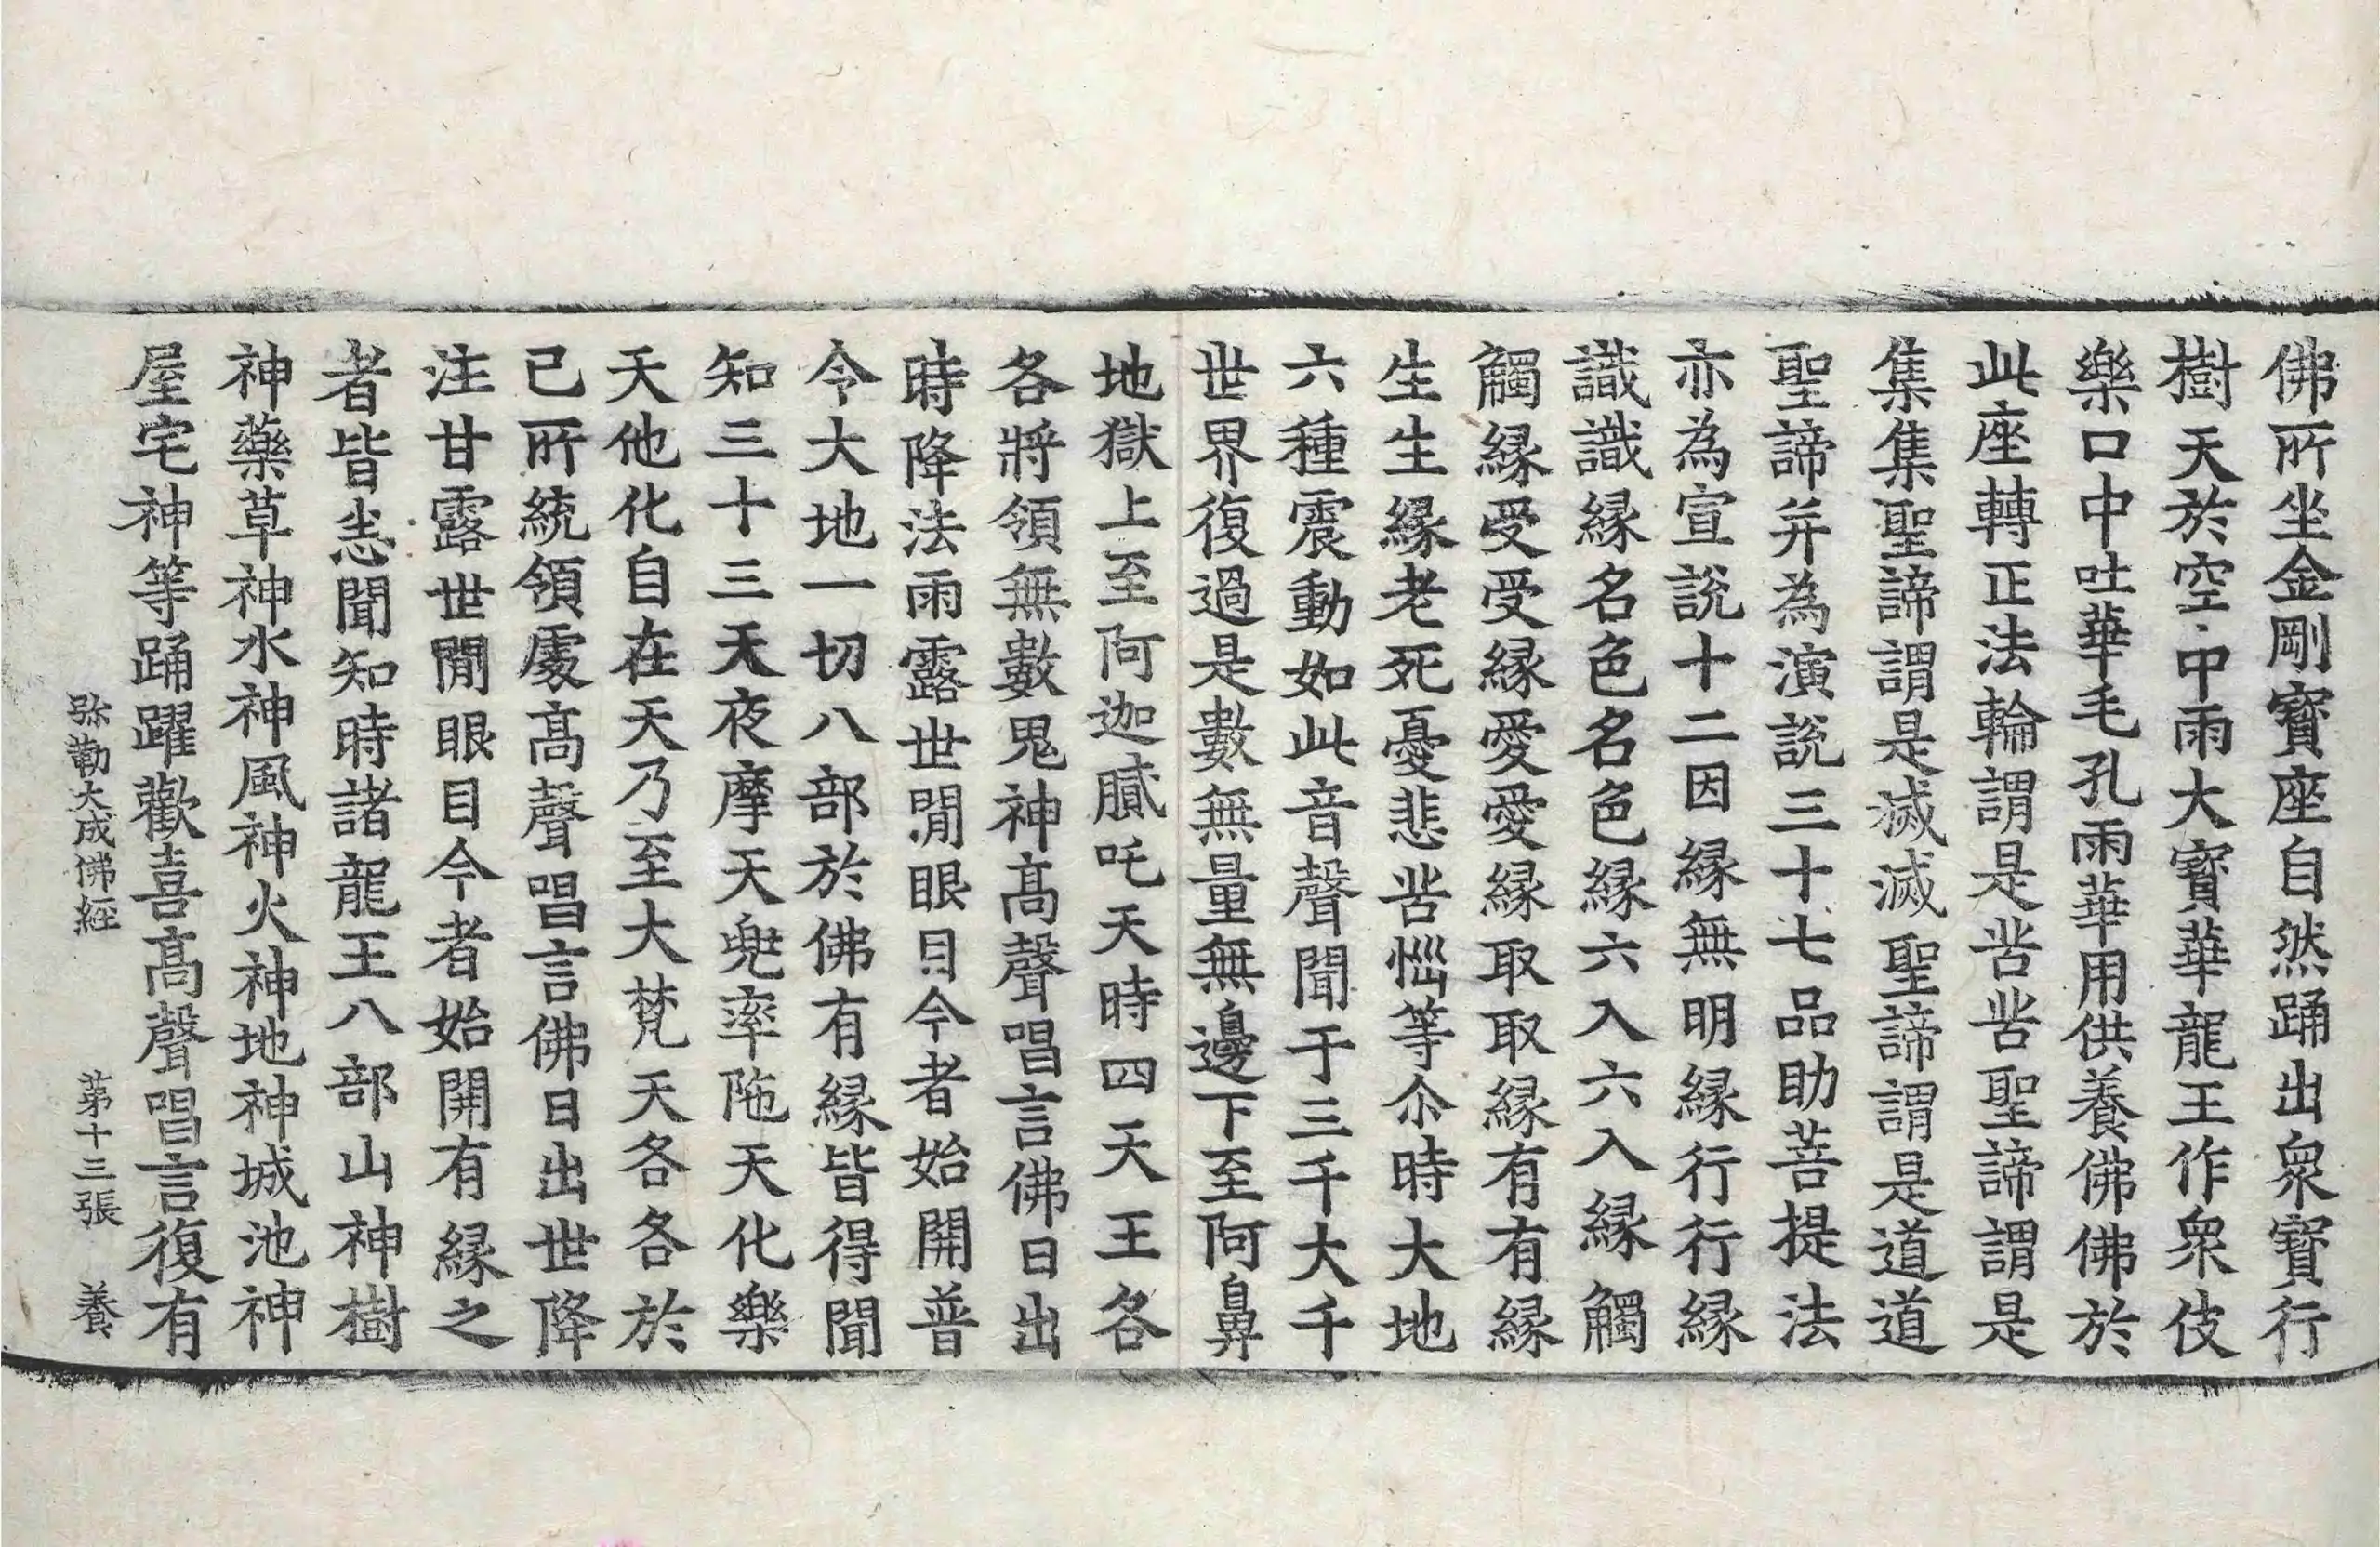 佛所坐金剛寶座自然踊出衆寶行
樹天於空中雨大寶華龍王作衆伎
樂口中吐華毛孔雨華用供養佛佛於
此座轉正法輪謂是苦苦聖諦謂是
集集聖諦謂是滅滅聖諦謂是道道
聖諦并為演說三十七品助菩提法
亦為宣說十二因緣無明緣行行緣
識識緣名色名色緣六入六入緣觸
觸緣受受緣愛愛緣取取緣有有緣
生生緣老死憂悲苦惱等尒時大地
六種震動如此音聲聞于三千大千
世界復過是數無量無邊下至阿鼻
地獄上至阿迦膩吒天時四天王各
各將領無數鬼神高聲唱言佛日出
時降法雨露世間眼目今者始開普
令大地一切八部於佛有緣皆得聞
知三十三天夜摩天兜率陁天化樂
天他化自在天乃至大梵天各各於
已所統領處高聲唱言佛日出世降
注甘露世間眼目今者始開有緣之
者皆悉聞知時諸龍王八部山神樹
神藥草神水神風神火神地神城池神
屋宅神等踊躍歡喜高聲唱言復有
弥勒大成佛經 苐十三張 養